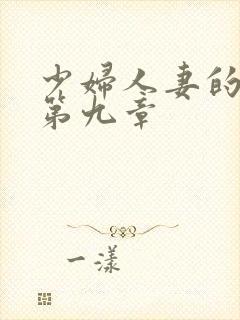 少婦人妻的
第九章
一漾